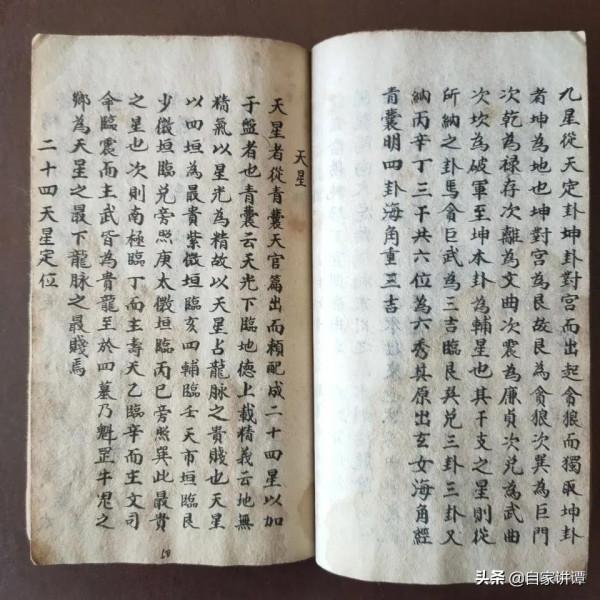 九星從天定卦坤卦對宮而出起貪狼而獨取坤卦
者坤為地也坤對宮為艮故艮為貪狼次巽為巨門
次乾為祿存次離為文曲次震為廉貞次兌為武曲
次坎為破軍至坤本卦為輔星也其干支之星則從
所納之卦馬貪巨武為三吉臨艮巽兌三卦三卦又
納丙辛丁三干共六位為六秀其原出玄女海角經
青囊明四卦海角重三吉
天星
天星者從青囊天官篇出而賴配成二十四星以加
于盤者也青囊云天光下臨地德上載精義云地無
精氣以星光為精故以天星占龍脉之貴賤也天星
以四垣為最貴紫微垣臨亥四輔臨壬天市垣臨艮
少微垣臨兌旁照庚太微垣臨丙巳旁照巽此最貴
之星也次則南極臨丁而主壽天乙臨辛而主文司
命臨震而主武皆為貴龍至於四墓乃魁罡牛鬼之
鄉為天星之最下龍脉之最賤焉
二十四天星定位
头条 @自家讲谭